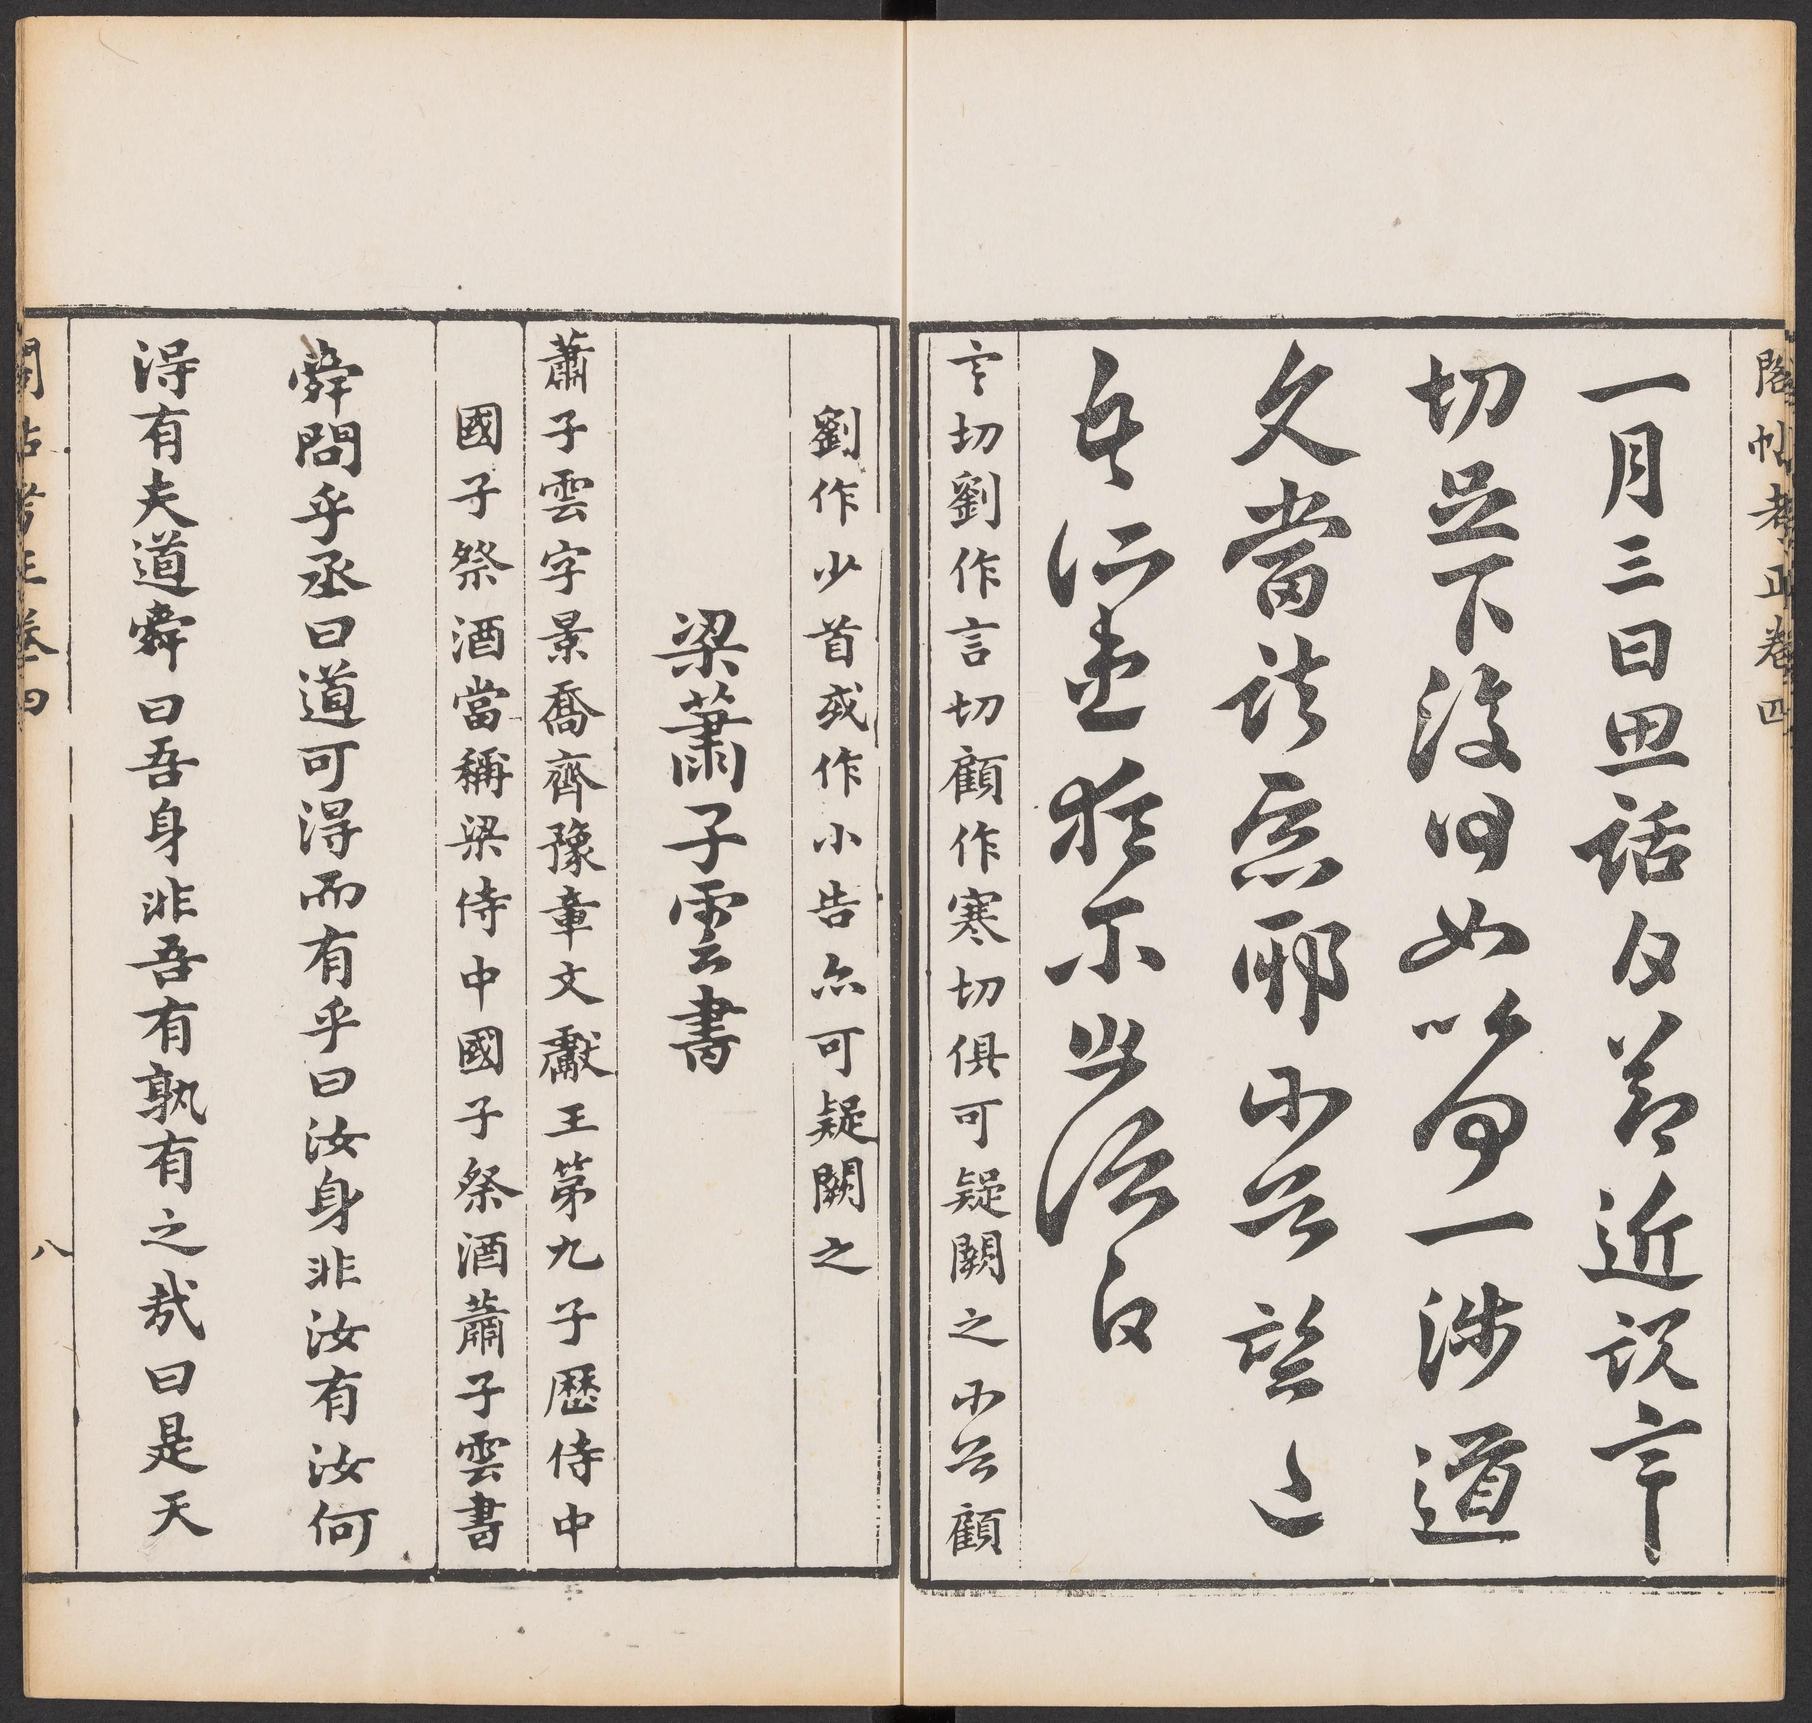 閣帖考正卷四
一月三日思話白節近言
切足下復何如一涉道
久當邪望
白
切劉作言切顧作寒切俱可疑闕之顧
劉作少首或作小告亦可疑闕之
梁蕭子雲書
蕭子雲字景喬齊豫章文獻王第九子歷侍中
國子祭酒當稱梁侍中國子祭酒蕭子雲書
舜問乎丞曰道可得而有乎曰汝身非汝有汝何
得有夫道舜曰吾身非吾有孰有之哉曰是天
閣帖考正卷四
八